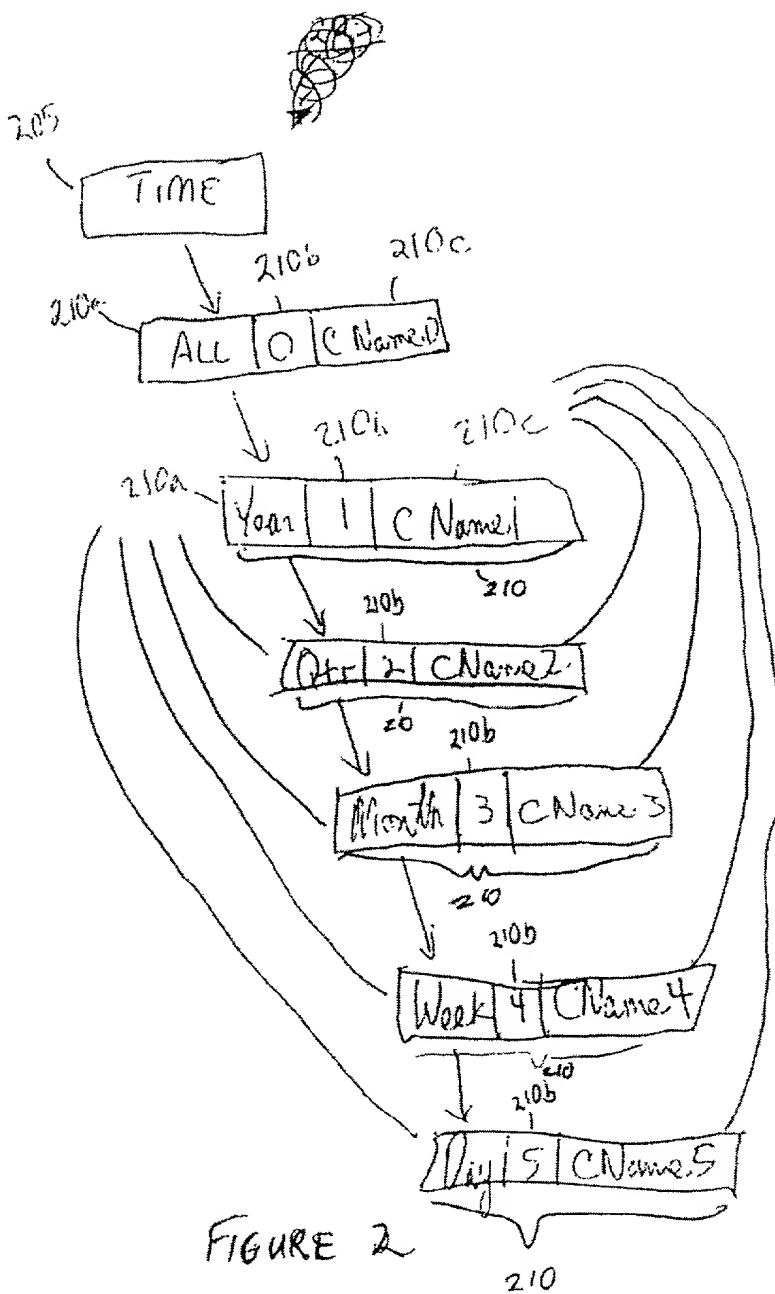 205
TIME
210b 210c
210a
ALL 0 C Name.0
210b 210c
210a
Year 1 C Name.1
210
210b
Qtr 2 CName2.
210
210b
Month 3 CName 3
210
210b
Week 4 CName.4
210
210b
Day 5 CName.5
210
FIGURE 2